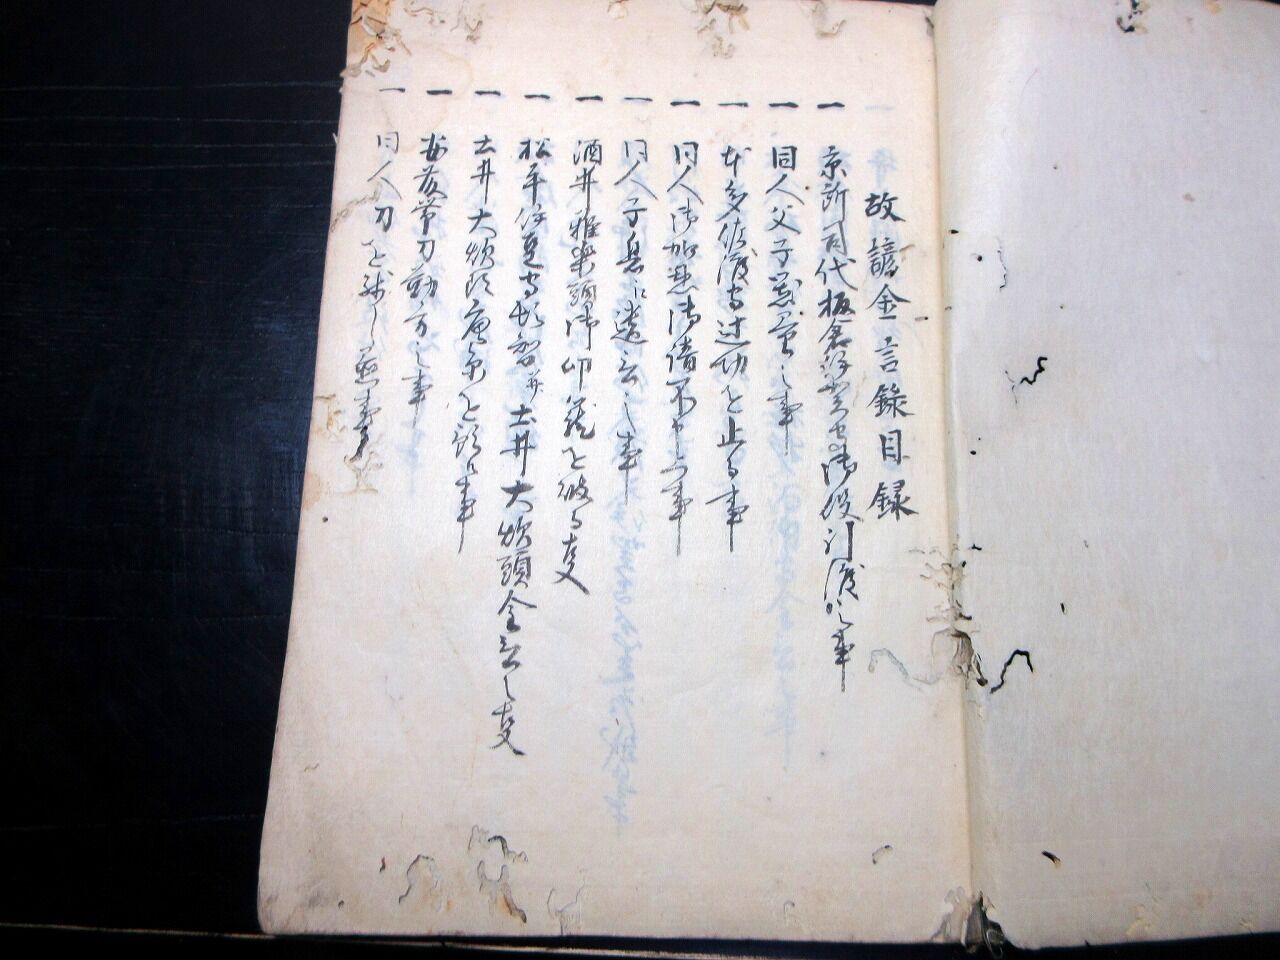 故諺金言録目録
一 京所司代板倉伊賀守御役引渡之事
一 同人父子器量之事
一 本多佐渡守辻切を止る事
一 同人御加恩御請不申上事
一 同人子息江遺言之事
一 酒井雅楽頭御印籠を破る事
一 松平伊豆守 并土井大炊頭金言之事
一 土井大炊頭唐糸を 事
一 安藤帯刀勤方之事
一 同人刀を 事